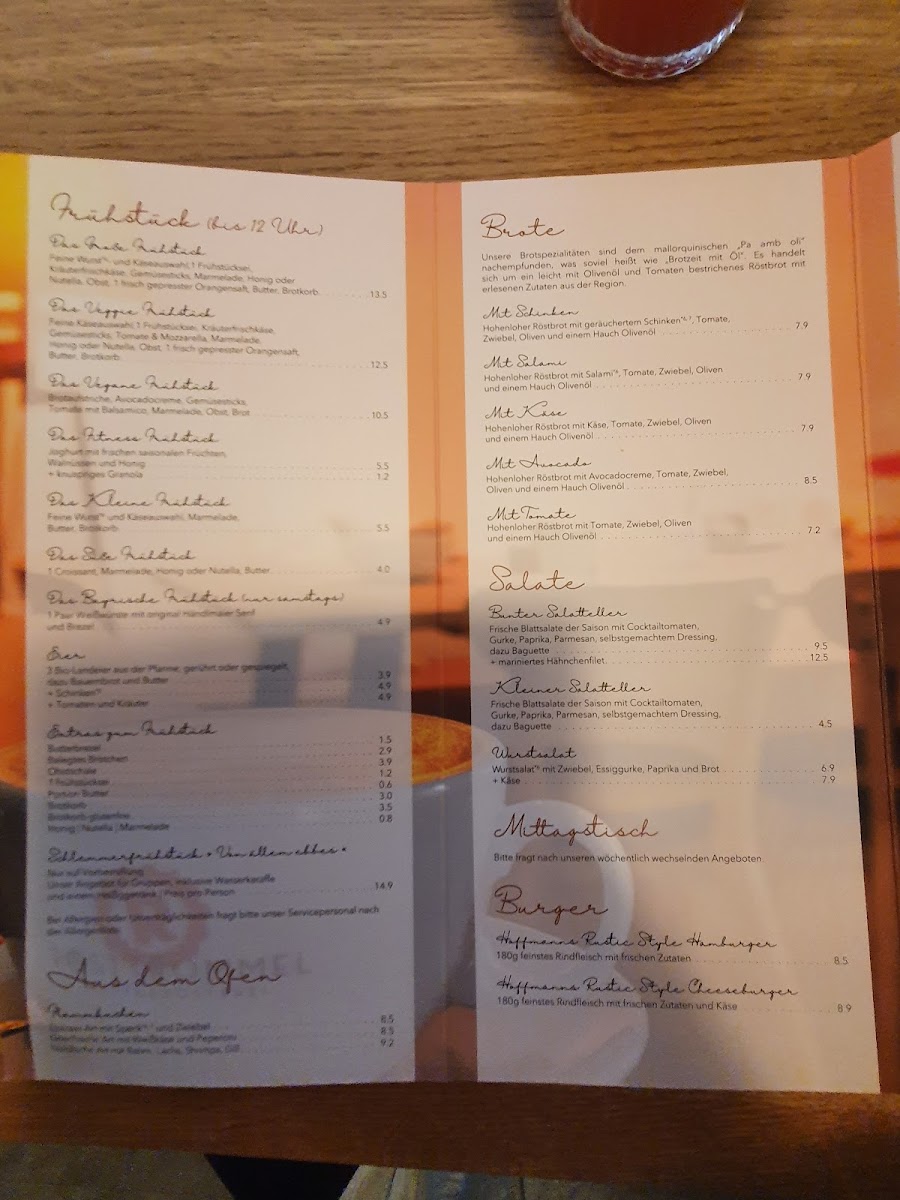 Frühstück (bis 12 Uhr)
Das Große Frühstück
Feine Wurst- und Käseauswahl, 1 Frühstücksei,
Kräuterfrischkäse, Gemüsesticks, Marmelade, Honig oder
Nutella, Obst, 1 frisch gepresster Orangensaft, Butter, Brotkorb 13.5
Das Veggie Frühstück
Feine Käseauswahl, 1 Frühstücksei, Kräuterfrischkäse,
Gemüsesticks, Tomate & Mozzarella, Marmelade,
Honig oder Nutella, Obst, 1 frisch gepresster Orangensaft,
Butter, Brotkorb 12.5
Das Vegane Frühstück
Brotaufstriche, Avocadocreme, Gemüsesticks,
Tomate mit Balsamico, Marmelade, Obst, Brot 10.5
Das Fitness Frühstück
Joghurt mit frischen saisonalen Früchten,
Walnüssen und Honig 5.5
+ knuspriges Granola 1.2
Das Kleine Frühstück
Feine Wurst- und Käseauswahl, Marmelade,
Butter, Brotkorb 5.5
Das Süße Frühstück
1 Croissant, Marmelade, Honig oder Nutella, Butter 4.0
Das Bayrische Frühstück (nur samstags)
1 Paar Weißwürste mit original Händlmaier Senf
und Brezel 4.9
Eier
3 Bio-Landeier aus der Pfanne, gerührt oder gespiegelt,
dazu Bauernbrot und Butter 3.9
+ Schinken 4.9
+ Tomaten und Kräuter 4.9
Extras zum Frühstück
Butterbrezel 1.5
Belegtes Brötchen 2.9
Obstschale 3.9
1 Frühstücksei 1.2
Portion Butter 0.6
Brotkorb 3.0
Brotkorb glutenfrei 3.5
Honig | Nutella | Marmelade 0.8
Schlemmerfrühstück » Von allem ebbes «
Nur auf Vorbestellung
Unser Angebot für Gruppen, inklusive Wasserkaraffe
und einem Heißgetränk | Preis pro Person 14.9
Bei Allergien oder Unverträglichkeiten fragt bitte unser Servicepersonal nach
der Allergenliste.
Aus dem Ofen
Flammkuchen
Elsässer Art mit Speck und Zwiebel 8.5
mit Weißkäse und Peperoni 8.5
Nordische Art mit Lachs, Shrimps, Dill 9.2
Brote
Unsere Brotspezialitäten sind dem mallorquinischen „Pa amb oli“
nachempfunden, was soviel heißt wie „Brotzeit mit Öl“. Es handelt
sich um ein leicht mit Olivenöl und Tomaten bestrichenes Röstbrot mit
erlesenen Zutaten aus der Region.
Mit Schinken
Hohenloher Röstbrot mit geräuchertem Schinken, Tomate,
Zwiebel, Oliven und einem Hauch Olivenöl 7.9
Mit Salami
Hohenloher Röstbrot mit Salami, Tomate, Zwiebel, Oliven
und einem Hauch Olivenöl 7.9
Mit Käse
Hohenloher Röstbrot mit Käse, Tomate, Zwiebel, Oliven
und einem Hauch Olivenöl 7.9
Mit Avocado
Hohenloher Röstbrot mit Avocadocreme, Tomate, Zwiebel,
Oliven und einem Hauch Olivenöl 8.5
Mit Tomate
Hohenloher Röstbrot mit Tomate, Zwiebel, Oliven
und einem Hauch Olivenöl 7.2
Salate
Bunter Salatteller
Frische Blattsalate der Saison mit Cocktailtomaten,
Gurke, Paprika, Parmesan, selbstgemachtem Dressing,
dazu Baguette 9.5
+ mariniertes Hähnchenfilet 12.5
Kleiner Salatteller
Frische Blattsalate der Saison mit Cocktailtomaten,
Gurke, Paprika, Parmesan, selbstgemachtem Dressing,
dazu Baguette 4.5
Wurstsalat
Wurstsalat mit Zwiebel, Essiggurke, Paprika und Brot 6.9
+ Käse 7.9
Mittagstisch
Bitte fragt nach unseren wöchentlich wechselnden Angeboten
Burger
Hoffmanns Rustic Style Hamburger
180g feinstes Rindfleisch mit frischen Zutaten 8.5
Hoffmanns Rustic Style Cheeseburger
180g feinstes Rindfleisch mit frischen Zutaten und Käse 8.9